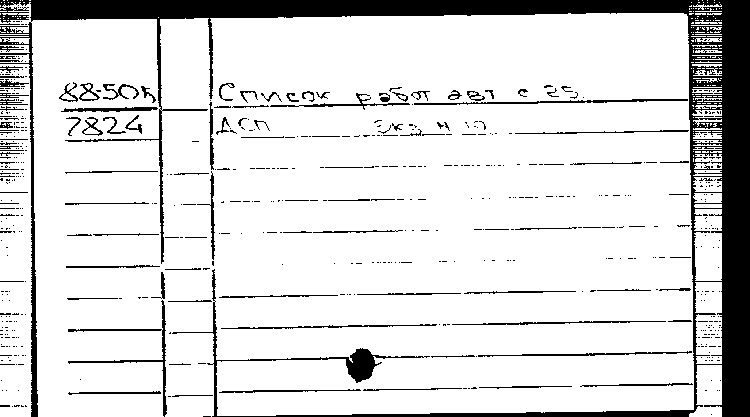 88-50ъ Список работ авт с 25.
7824 ДСП Экз N 10